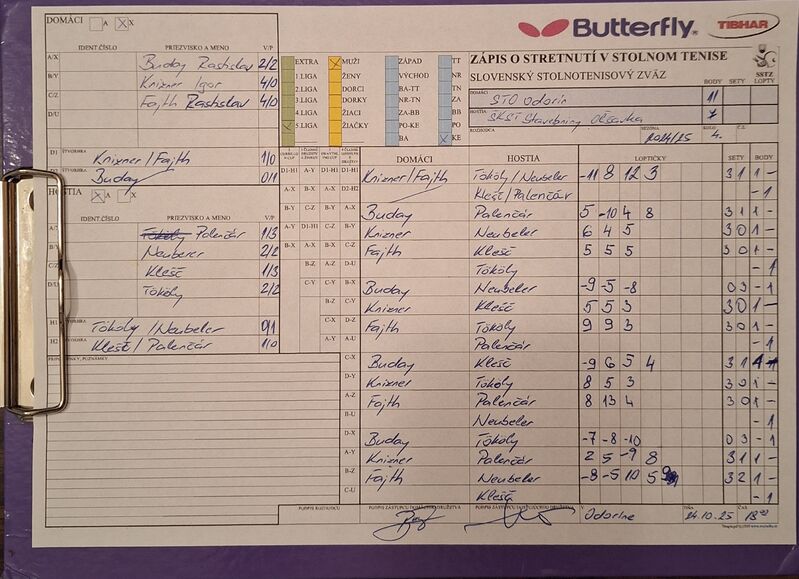 DOMÁCI A X
Butterfly TIBHAR
IDENT ČÍSLO PRIEZVISKO A MENO V/P
A/X Buday Rastislav 2/2
B/Y Knixner Igor 4/0
C/Z Fajth Rastislav 4/0
D/U
EXTRA MUŽI ZÁPAD TT
1.LIGA ŽENY VÝCHOD NR
2.LIGA DORCI BA-TT TN
3.LIGA DORKY NR-TN ZA
4.LIGA ŽIACI ZA-BB BB
5.LIGA ŽIAČKY PO-KE PO
BA KE
ZÁPIS O STRETNUTÍ V STOLNOM TENISE
SLOVENSKÝ STOLNOTENISOVÝ ZVÄZ
BODY SETY SSTZ LOPTY
DOMÁCI STO Odorín 11
HOSTIA ŠKST Stavebniny Oľšavka 7
ROZHODCA SEZÓNA 2024/25 KOLO 4. Č.Z.
D1 Knixner/Fajth 1/0
D2 Buday 0/1
HOSTIA A X
IDENT ČÍSLO PRIEZVISKO A MENO V/P
A/Y Palenčár 1/3
Neuberer 2/2
Klešč 1/3
Tököly 2/2
H1 Tököly/Neubeler 0/1
H2 Klešč/Palenčár 1/0
PRIPOMIENKY, POZNÁMKY
DOMÁCI HOSTIA LOPTIČKY SETY BODY
D1-H1 A-Y D1-H1 D1-H1 Knixner/Fajth Tököly/Neubeler -11 8 12 3 3 1 1 -
A-X B-X A-X D2-H2 Klešč/Palenčár - 1
B-Y C-Z B-Y A-X Buday Palenčár 5 -10 4 8 3 1 1 -
A-Y D1-H1 C-Z B-Y Knixner Neubeler 6 4 5 3 0 1 -
B-X A-X B-X C-Z Fajth Klešč 5 5 5 3 0 1 -
B-Z A-Z D-U Tököly - 1
C-Y C-Y B-X Buday Neubeler -9 -5 -8 0 3 - 1
B-Z C-Y Knixner Klešč 5 5 3 3 0 1 -
C-X D-Z Fajth Tököly 9 9 3 3 0 1 -
A-Y A-U Palenčár - 1
C-X Buday Klešč -9 6 5 4 3 1 1 -
D-Y Knixner Tököly 8 5 3 3 0 1 -
A-Z Fajth Palenčár 8 13 4 3 0 1 -
B-U Neubeler - 1
D-X Buday Tököly -7 -8 -10 0 3 - 1
A-Y Knixner Palenčár 2 5 -9 8 3 1 1 -
B-Z Fajth Neubeler -8 -5 10 5 9 3 2 1 -
C-U Klešč - 1
PODPIS ROZHODCU PODPIS ZÁSTUPCU DOMÁCEHO DRUŽSTVA PODPIS ZÁSTUPCU HOSŤUJÚCEHO DRUŽSTVA V Odoríne DŇA 24.10.25 ČAS